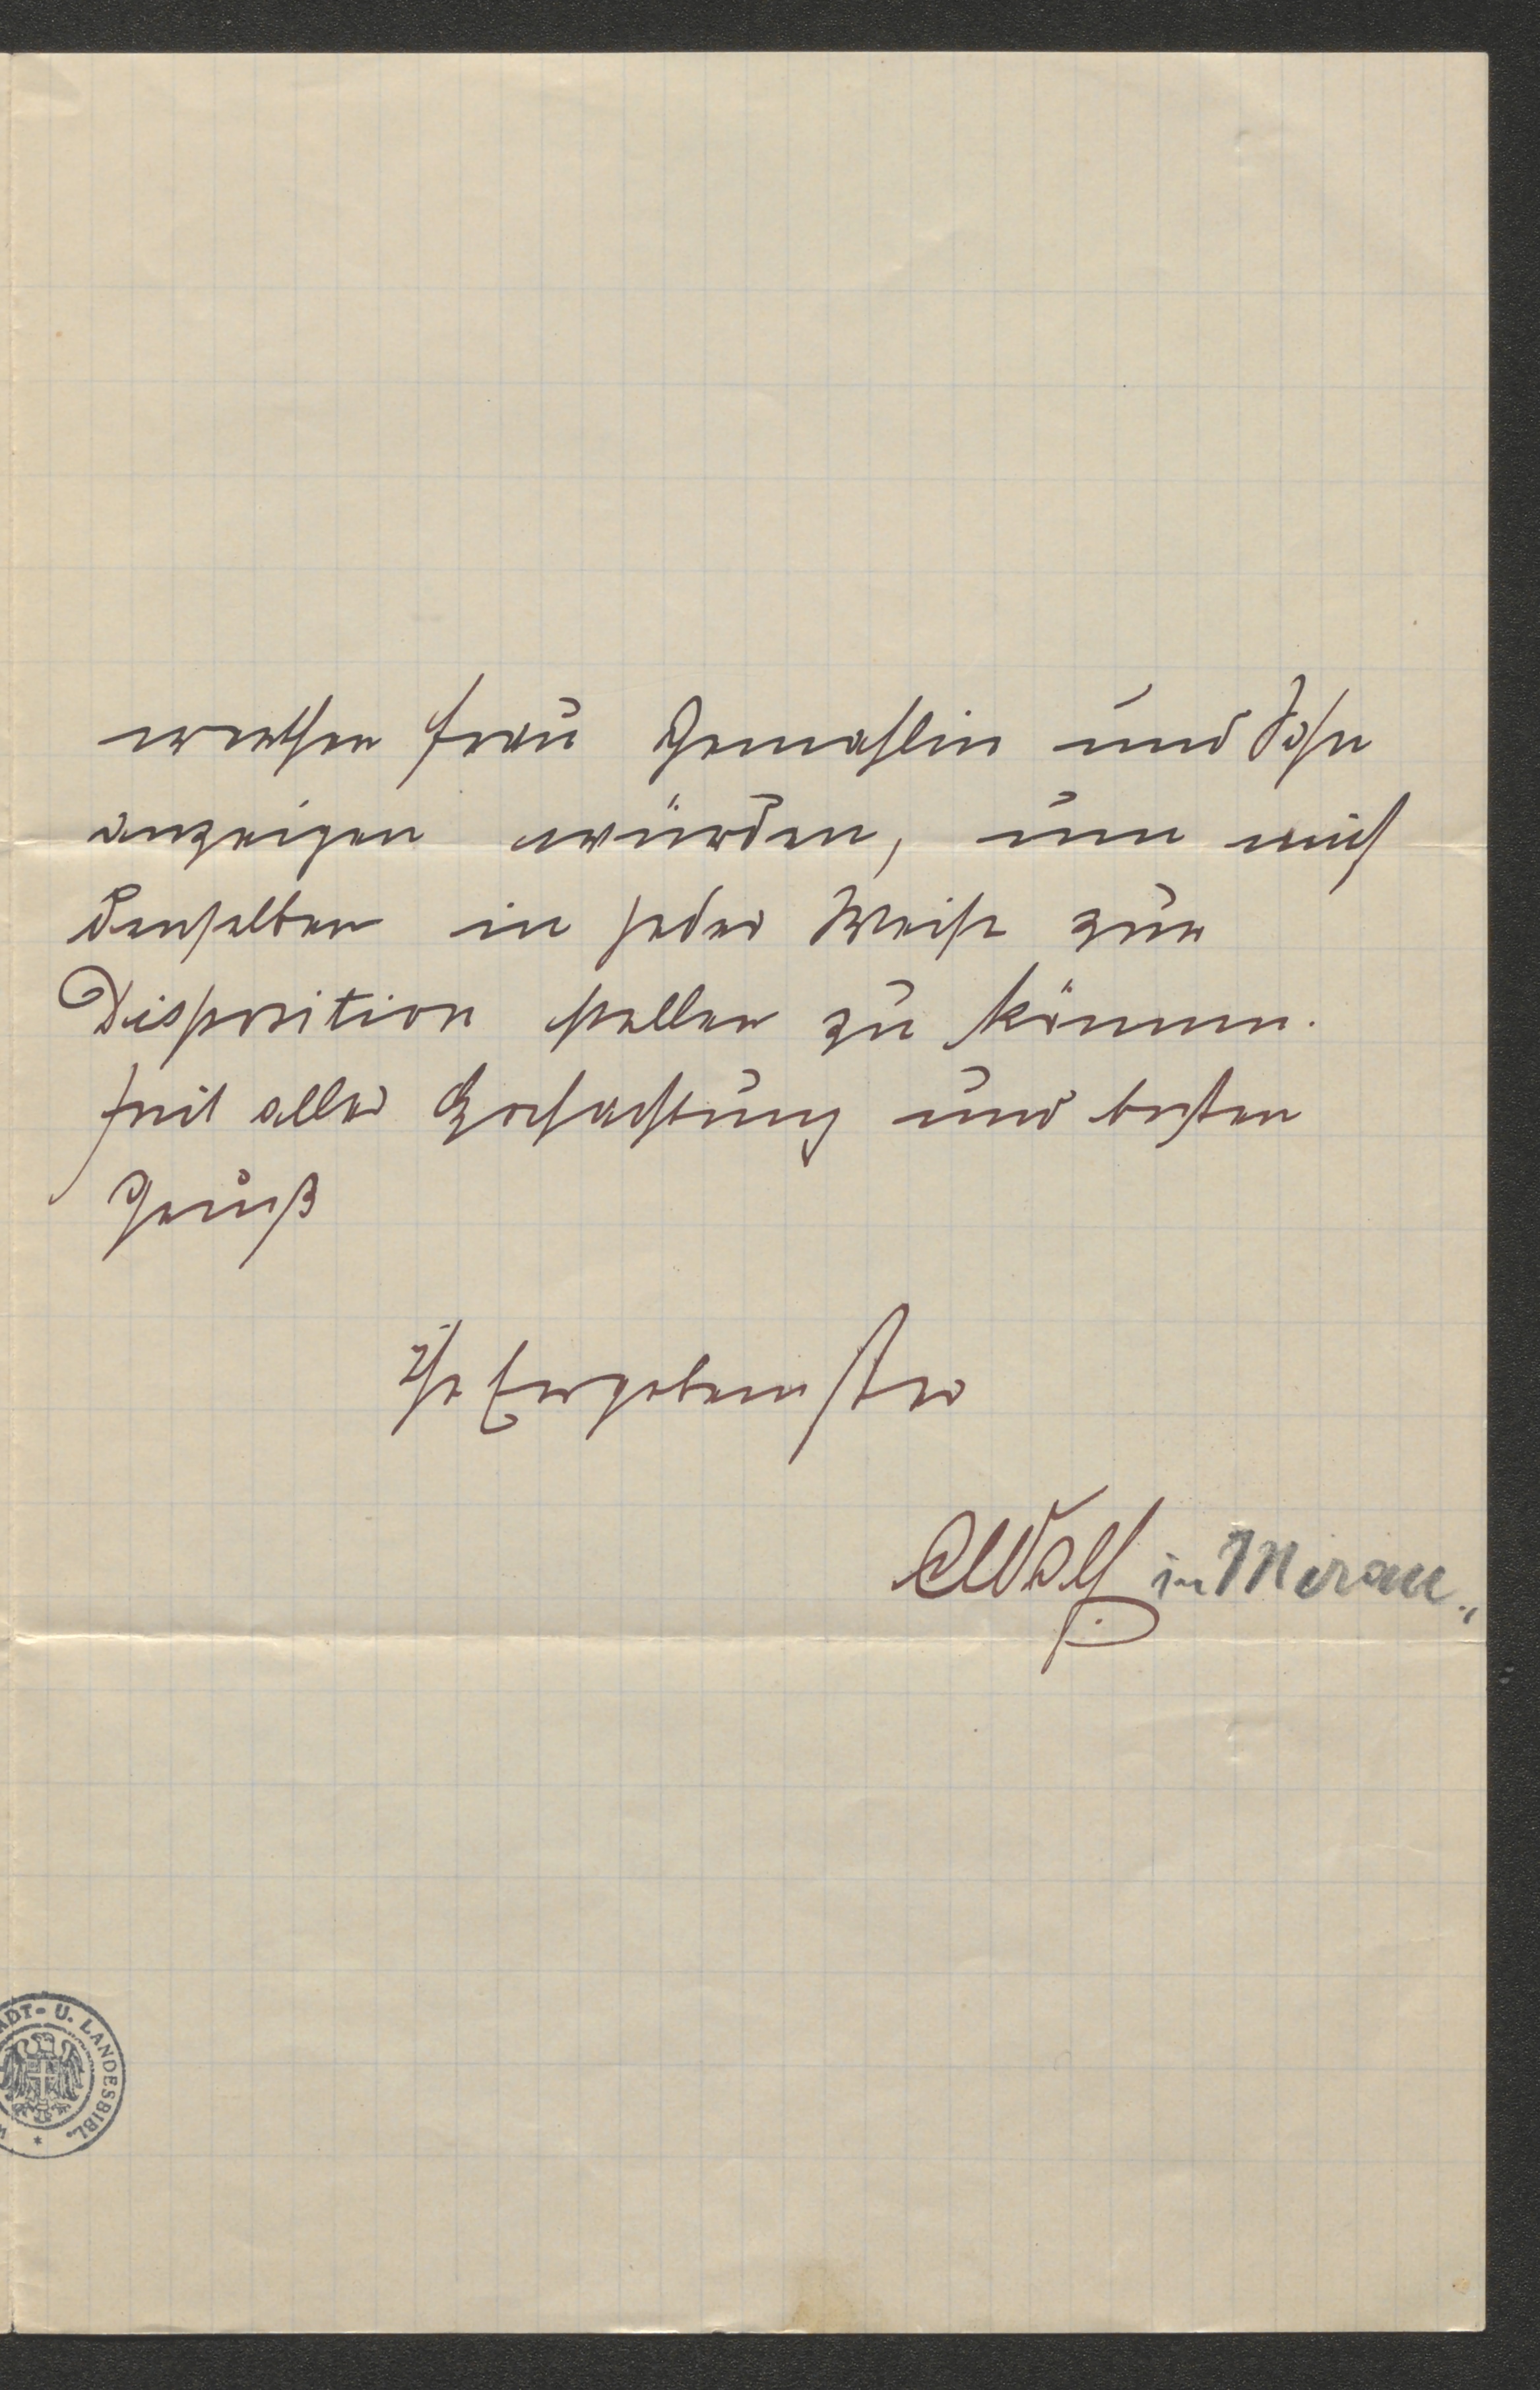 werthen Frau Gemahlin und Sohn
anzeigen würden, um mich
denselben in jeder Weise zur
Disposition stellen zu können.
Mit aller Hochachtung und besten
Gruß
Ihr Ergebenster
AWolf in Meran
ADT- U. LANDESBIBL.